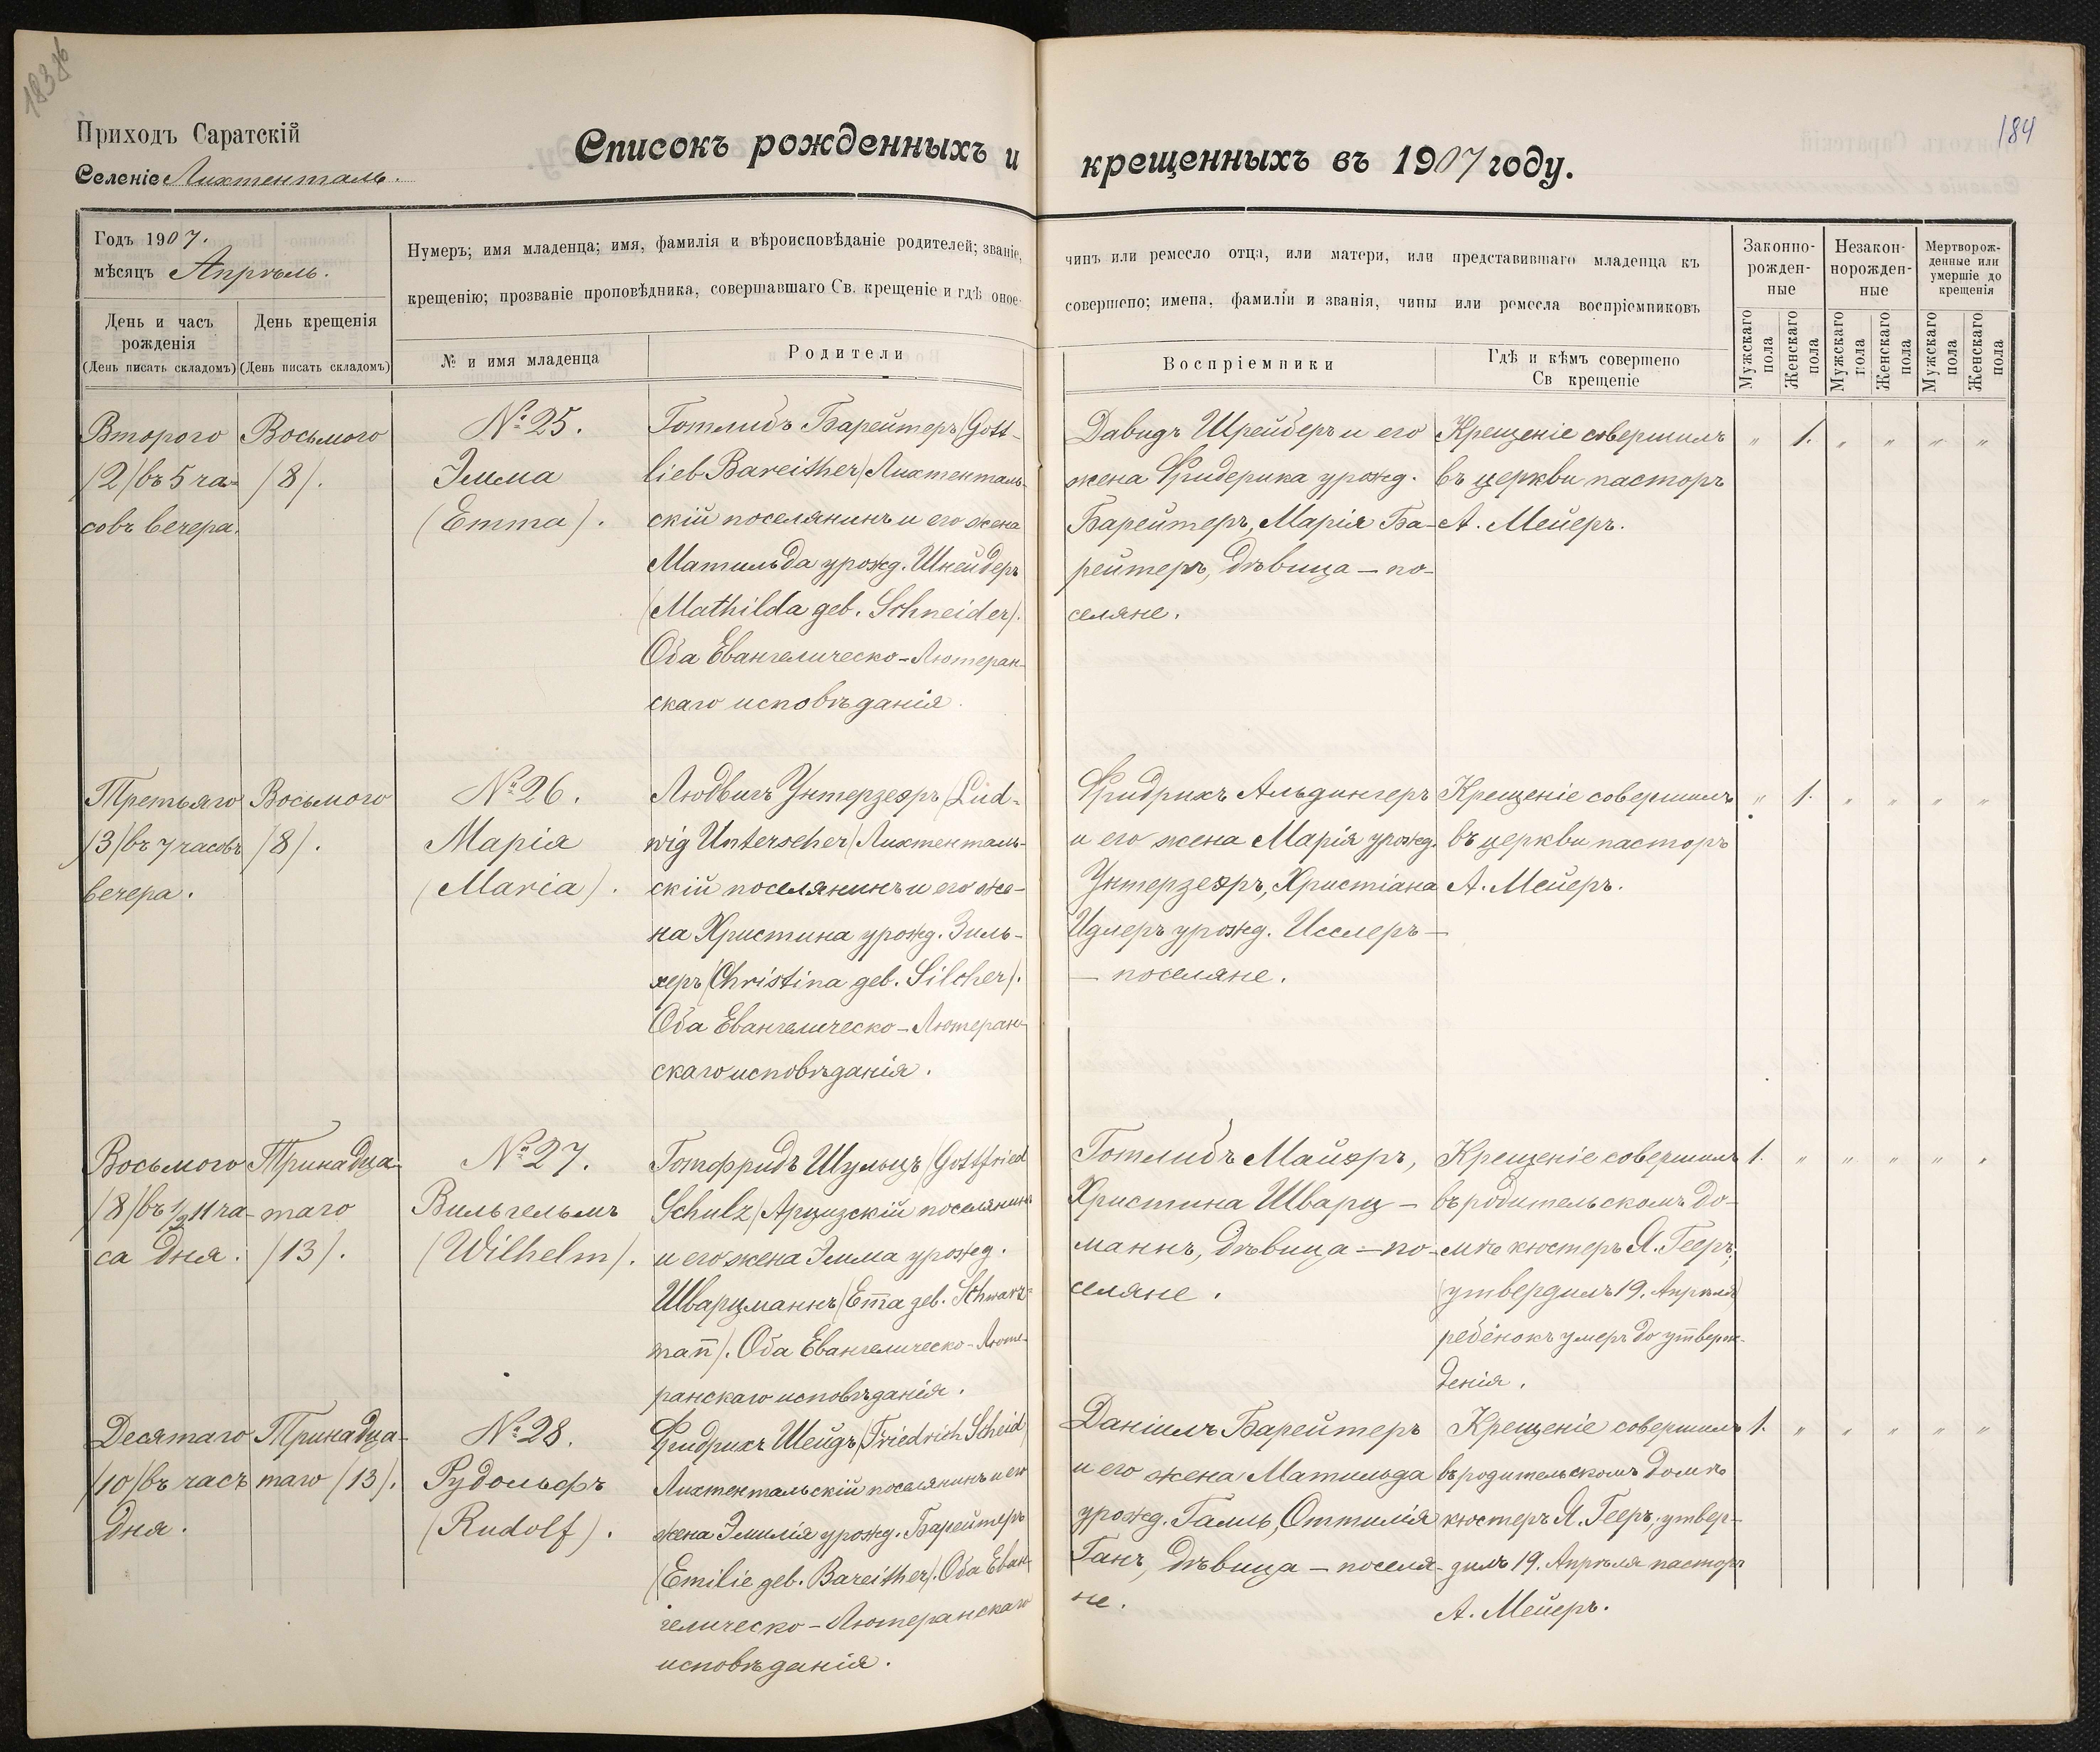 183 об
184
Приходъ Саратскій
Селеніе Лихтенталь.
Списокъ рожденныхъ и крещенныхъ въ 1907 году.
Годъ 1907.
мѣсяцъ Апрѣль.
День и часъ рожденія
(День писать складомъ)
День крещенія
(День писать складомъ)
Нумеръ; имя младенца; имя, фамилія и вѣроисповѣданіе родителей; званіе, чинъ или ремесло отца, или матери, или представившаго младенца къ
крещенію; прозваніе проповѣдника, совершавшаго Св. крещеніе и гдѣ оное совершено; имена, фамиліи и званія, чины или ремесла воспріемниковъ
№ и имя младенца
Родители
Воспріемники
Гдѣ и кѣмъ совершено
Св крещеніе
Законно-
рожден-
ные
Незакон-
норожден-
ные
Мертворож-
денные или
умершіе до
крещенія
Мужскаго пола
Женскаго пола
Мужскаго пола
Женскаго пола
Мужскаго пола
Женскаго пола
Второго
/2/ въ 5 ча-
совъ вечера.
Восьмого
/8/.
№ 25.
Эмма
(Emma).
Готлибъ Барейтеръ /Gott-
lieb Bareither/ Лихтенталь-
скій поселянинъ и его жена
Матильда урожд. Шнейдеръ
/Mathilda geb. Schneider/.
Оба Евангелическо-Лютеран-
скаго исповѣданія.
Давидъ Шрейберъ и его
жена Фридерика урожд.
Барейтеръ, Марія Ба-
рейтеръ, дѣвица — по-
селяне.
Крещеніе совершилъ
въ церкви пасторъ
А. Мейеръ.
" 1. " " " "
Третьяго
/3/ въ 7 часовъ
вечера.
Восьмого
/8/.
№ 26.
Марія
(Maria).
Людвигъ Унтерзееръ /Lud-
wig Unterseher/ Лихтенталь-
скій поселянинъ и его же-
на Христина урожд. Зиль-
херъ /Christina geb. Silcher/.
Оба Евангелическо-Лютеран-
скаго исповѣданія.
Фридрихъ Альдингеръ
и его жена Марія урожд.
Унтерзееръ, Христіана
Идлеръ урожд. Исслеръ —
— поселяне.
Крещеніе совершилъ
въ церкви пасторъ
А. Мейеръ.
" 1. " " " "
Восьмого
/8/ въ 1/2 11 ча-
са дня.
Тринадца-
таго
/13/.
№ 27.
Вильгельмъ
(Wilhelm).
Готфридъ Шульцъ /Gottfried
Schulz/ Арцизскій поселянинъ
и его жена Эмма урожд.
Шварцманнъ /Em̄a geb. Schwarz-
man̄/. Оба Евангелическо-Люте-
ранскаго исповѣданія.
Готлибъ Майеръ,
Христина Шварц-
маннъ, дѣвица — по-
селяне.
Крещеніе совершилъ
въ родительскомъ до-
мѣ кюстеръ Я. Гееръ;
(утвердилъ 19. Апрѣля)
ребёнокъ умеръ до утверж-
денія.
1. " " " " "
Десятаго
/10/ въ часъ
дня.
Тринадца-
таго /13/.
№ 28.
Рудольфъ
(Rudolf).
Фридрихъ Шейдъ /Friedrich Scheid/
Лихтентальскій поселянинъ и его
жена Эмилія урожд. Барейтеръ
/Emilie geb. Bareither/. Оба Еван-
гелическо-Лютеранскаго
исповѣданія.
Даніилъ Барейтеръ
и его жена Матильда
урожд. Галль, Оттилія
Ганъ, дѣвица — поселя-
не.
Крещеніе совершилъ
въ родительскомъ домѣ
кюстеръ Я. Гееръ; утвер-
дилъ 19. Апрѣля пасторъ
А. Мейеръ.
1. " " " " "